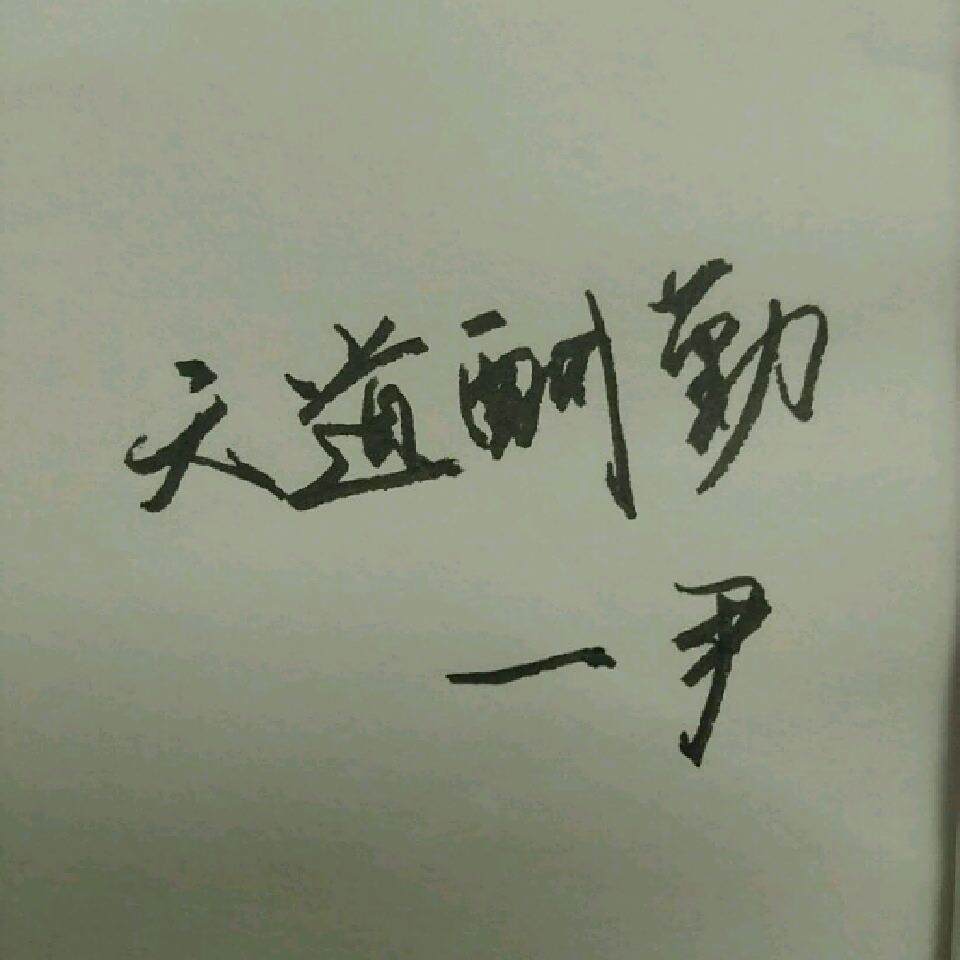 天道酬勤
一尹